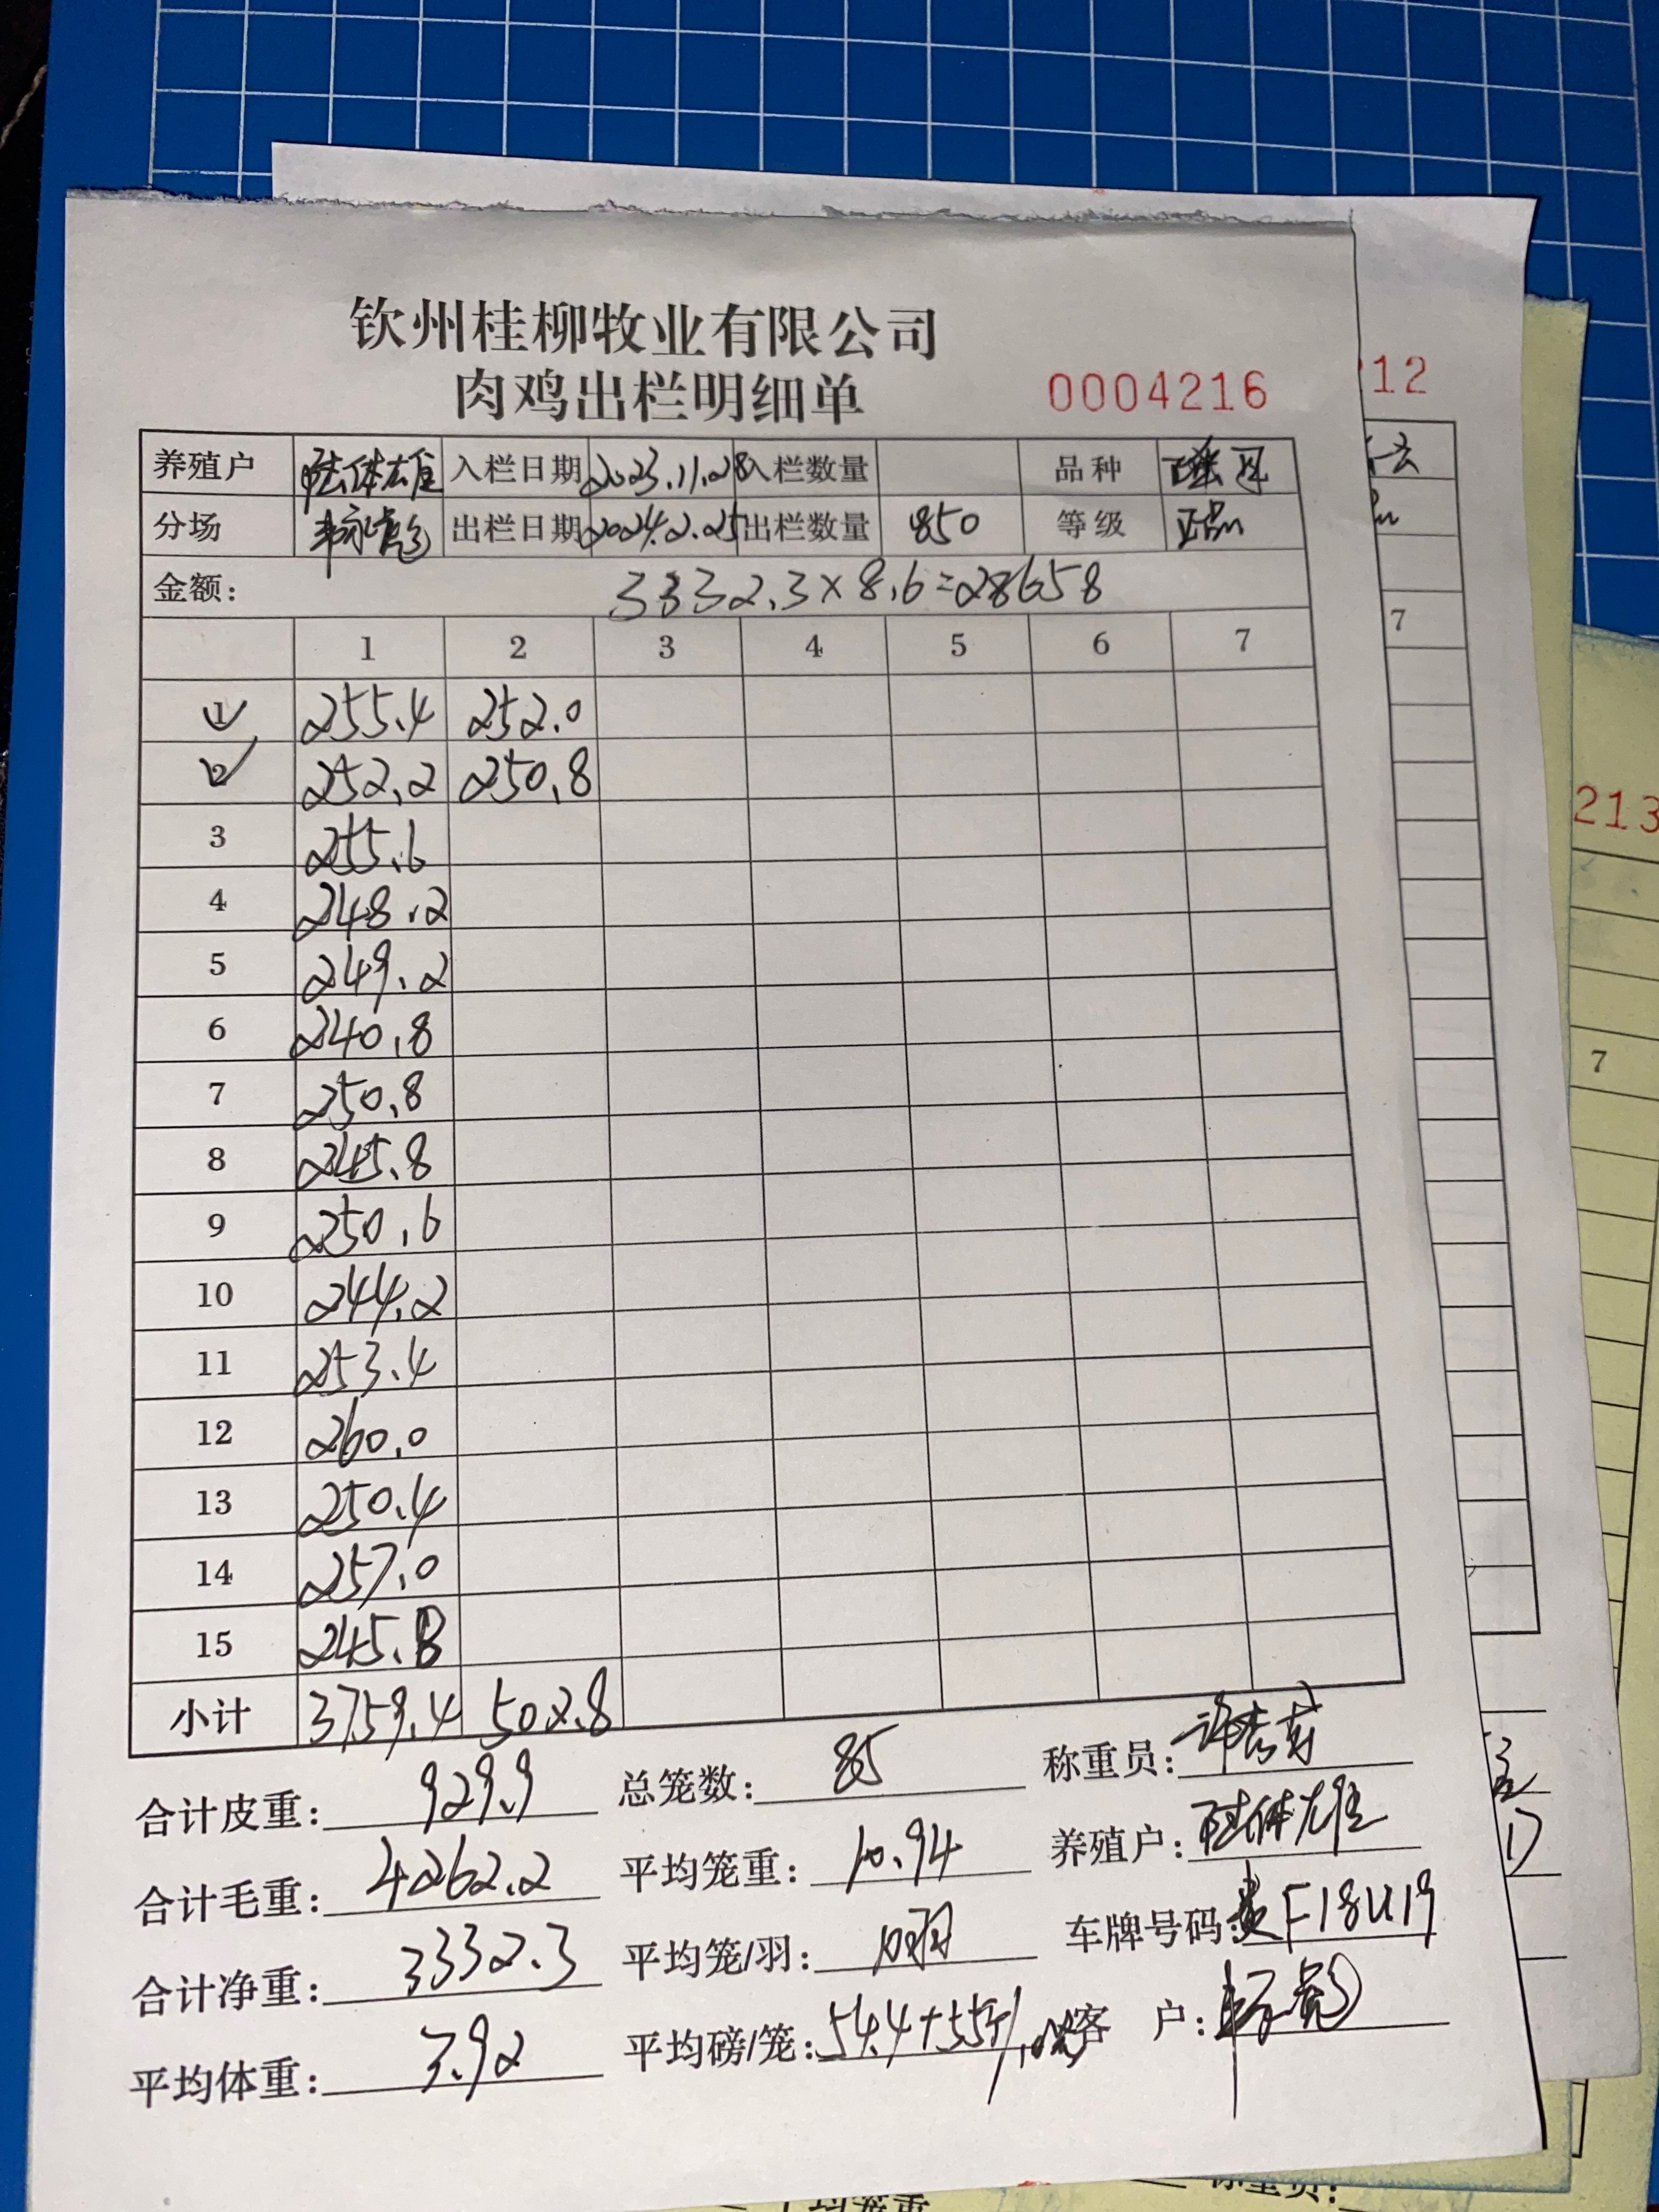 钦州桂柳牧业有限公司
肉鸡出栏明细单 0004216
212
养殖户 陆体雄 入栏日期 2023.11.28 入栏数量 品种
分场 出栏日期 2024.2.25 出栏数量 850 等级 正品
金额: 3332.3×8.6=28658
1 2 3 4 5 6 7
7
1 255.4 252.0
2 252.2 250.8
213
3 255.6
4 248.2
5 249.2
6 240.8
7
7 250.8
8 245.8
9 250.6
10 244.2
11 253.4
12 260.0
13 250.4
14 257.0
15 245.8
小计 3759.4 502.8
合计皮重: 929.9 总笼数: 85 称重员:
合计毛重: 4262.2 平均笼重: 10.94 养殖户: 陆体雄
合计净重: 3332.3 平均笼/羽: 10羽 车牌号码: F18U19
平均体重: 3.92 平均磅/笼: 54.4+55 客 户:
平均笼重 称重员: